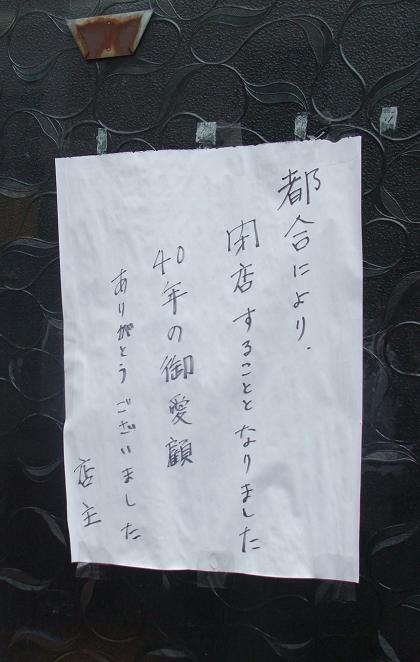 都合により、
閉店することとなりました
40年の御愛顧
ありがとうございました
店主